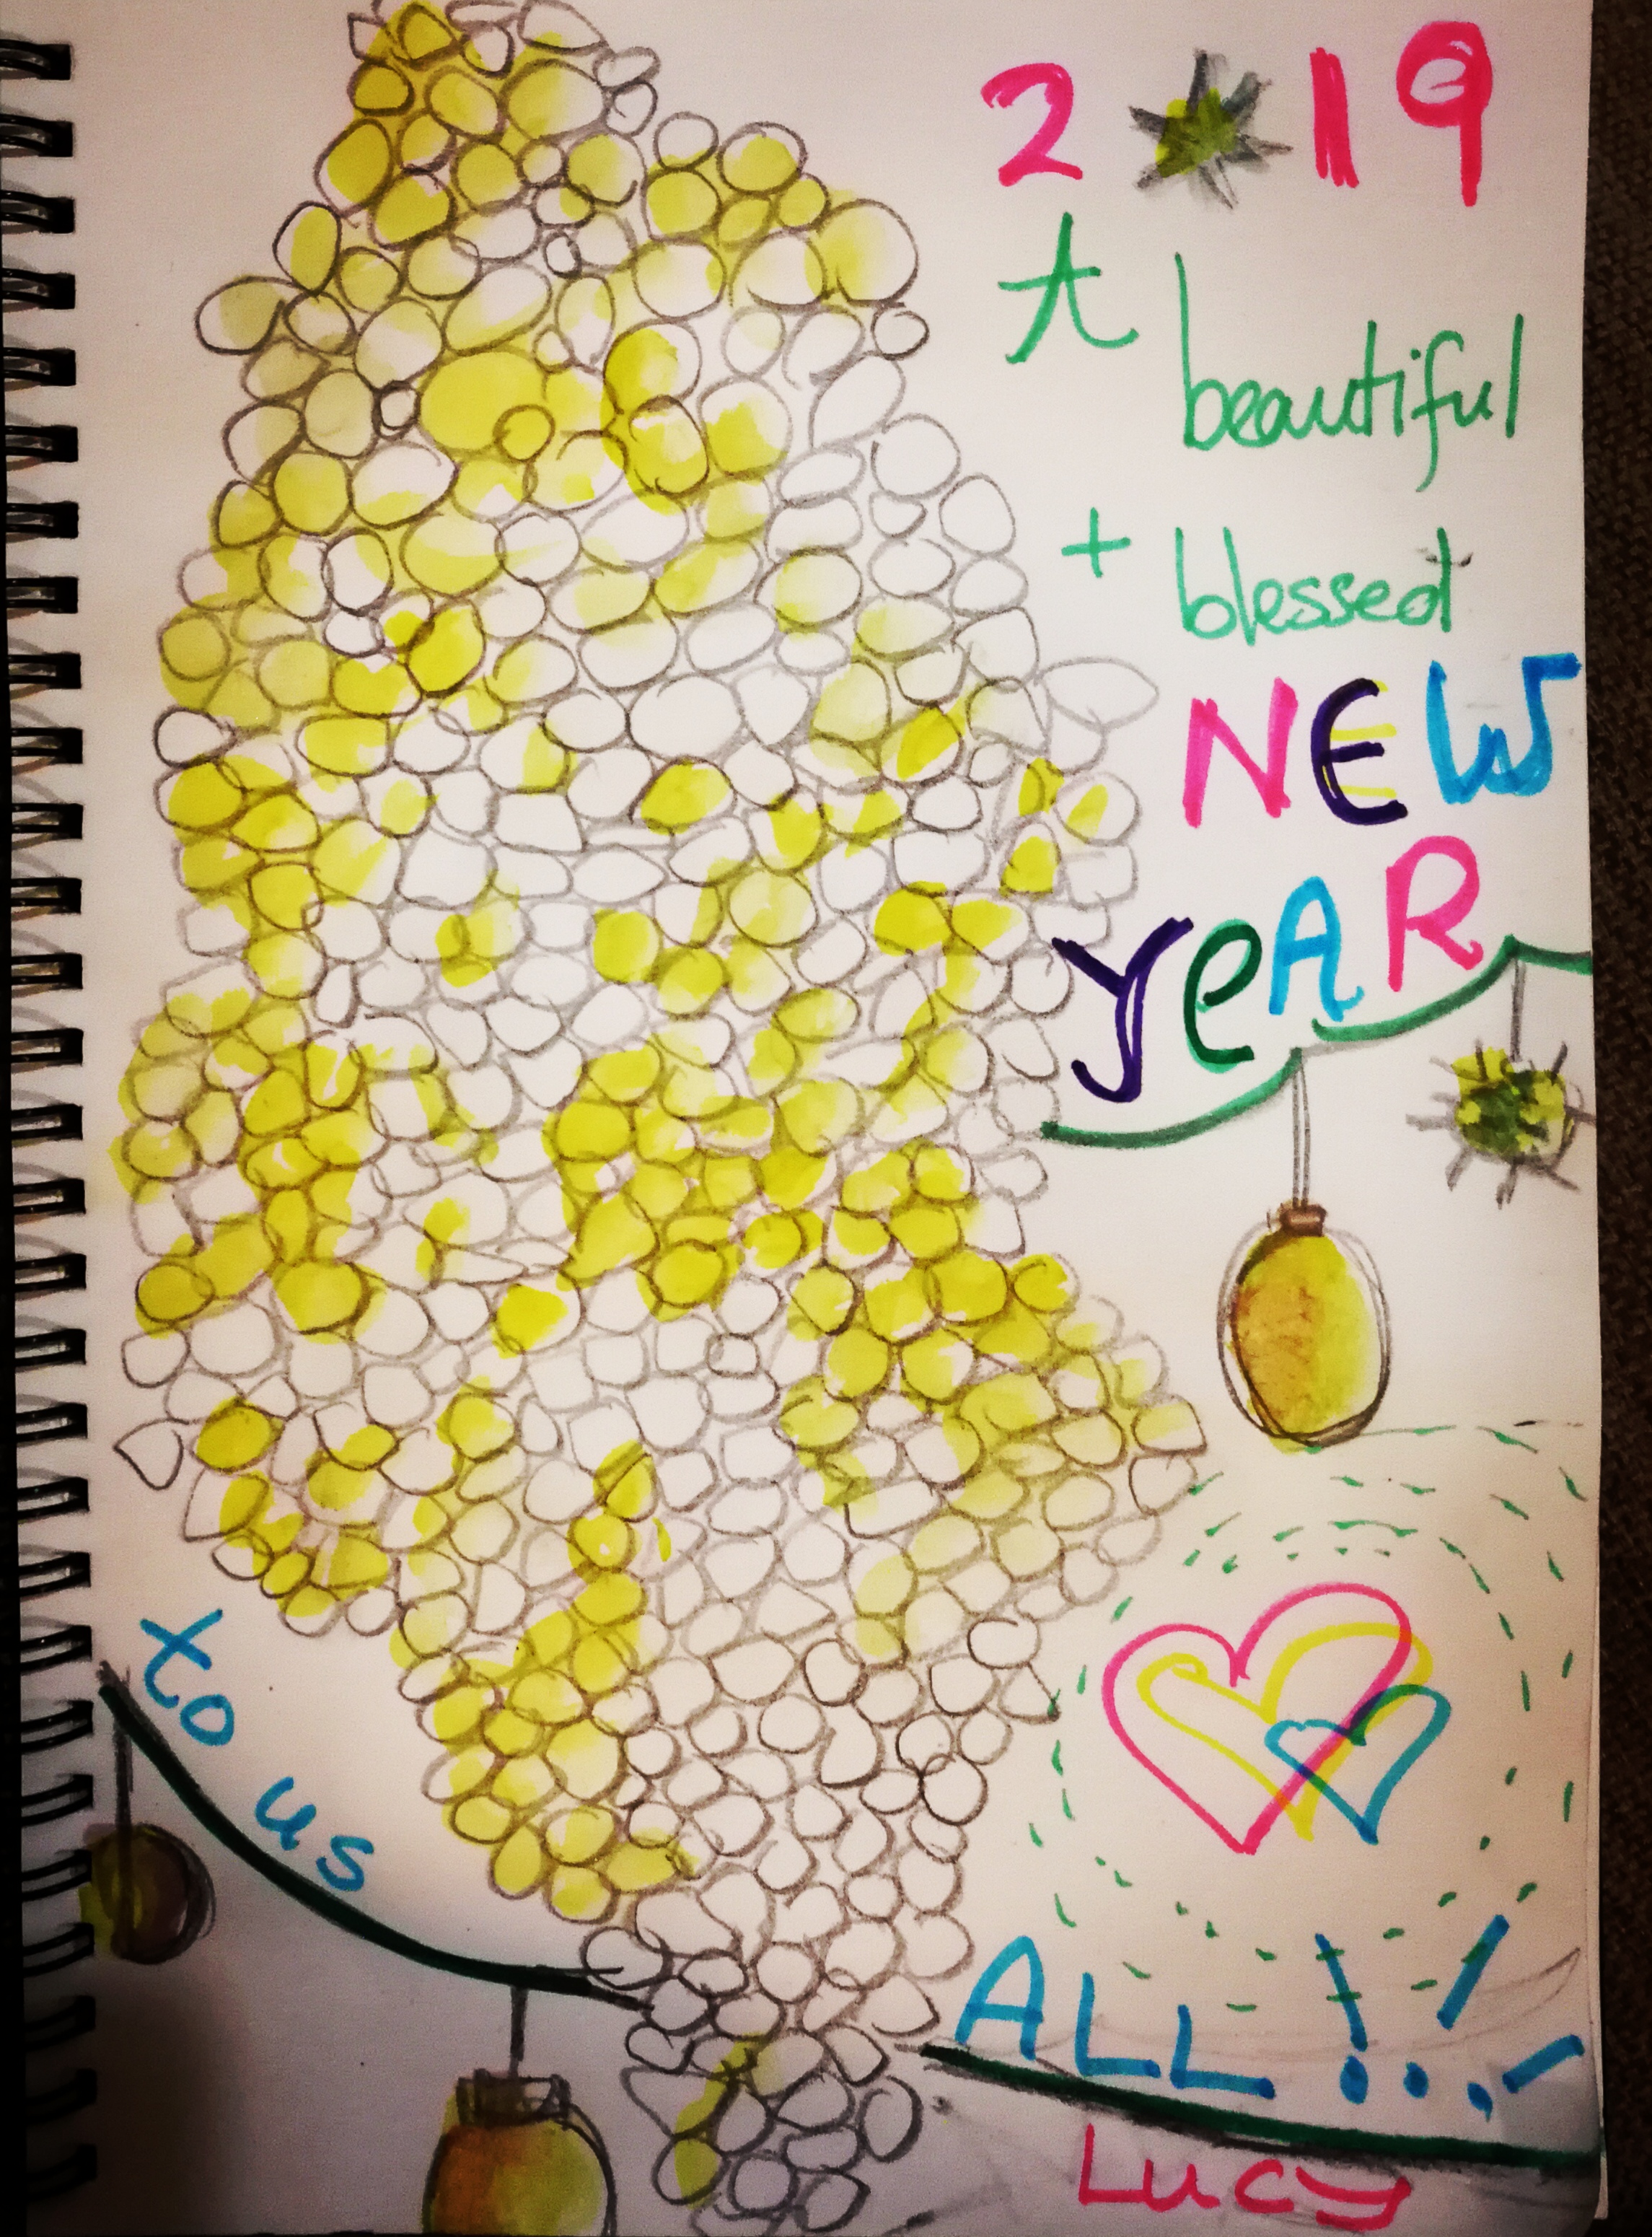 2019
A
beautiful
+ blessed
NEW
YeAR
to us
ALL!!!
Lucy